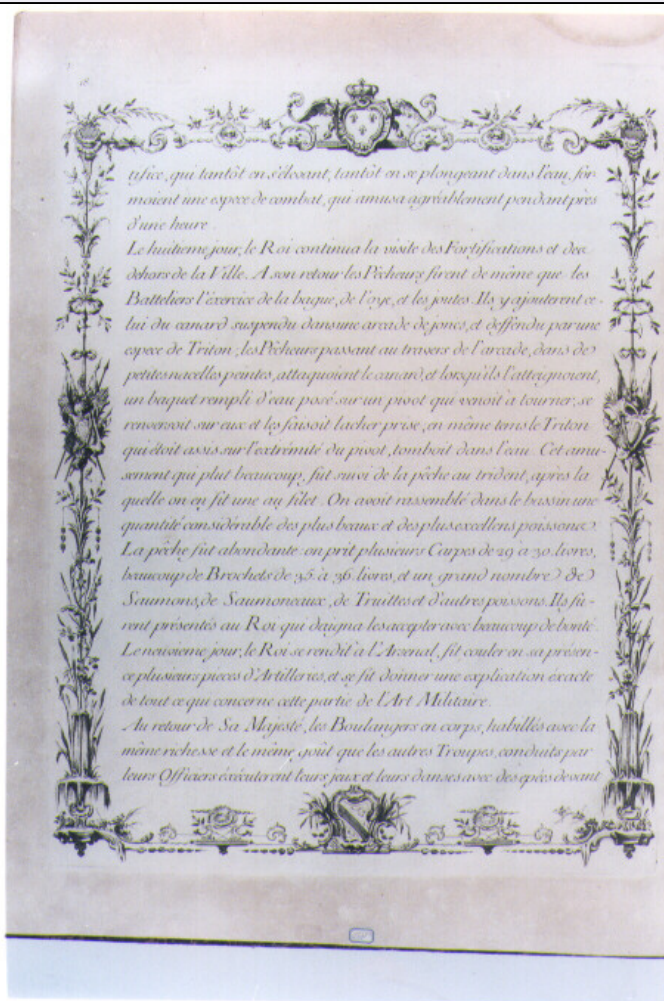 tifice, qui tantôt en s'élevant, tantôt en se plongeant dans l'eau, for-
moient une espece de combat, qui amusa agréablement pendant près
d'une heure.
Le huitieme jour, le Roi continua la visite des Fortifications et des
dehors de la Ville. A son retour les Pêcheurs firent de même que les
Batteliers l'éxercice de la bague, de l'oye, et les joutes. Ils y ajouterent ce-
lui du canard suspendu dans une arcade de joncs, et deffendu par une
espece de Triton, les Pêcheurs passant au travers de l'arcade, dans de
petites nacelles peintes, attaquoient le canard, et lorsqu'ils l'atteignoient,
un baquet rempli d'eau posé sur un pivot qui venoit à tourner, se
renversoit sur eux et les faisoit lacher prise, en même tems le Triton
qui étoit assis sur l'extrémité du pivot, tomboit dans l'eau. Cet amu-
sement qui plut beaucoup, fut suivi de la pêche au trident, après la
quelle on en fit une au filet. On avoit rassemblé dans le bassin une
quantité considérable des plus beaux et des plus excellens poissons.
La pêche fut abondante: on prit plusieurs Carpes de 29 à 30. livres,
beaucoup de Brochets de 35. à 36. livres, et un grand nombre de
Saumons, de Saumoneaux, de Truittes et d'autres poissons. Ils fu-
rent présentés au Roi qui daigna les accepter avec beaucoup de bonté.
Le neivieme jour, le Roi se rendit à l'Arsenal, fit couler en sa présen-
ce plusieurs pieces d'Artilleries, et se fit donner une explication éxacte
de tout ce qui concerne cette partie de l'Art Militaire.
Au retour de Sa Majesté, les Boulangers en corps, habillés avec la
même richesse et le même goût que les autres Troupes, conduits par
leurs Officiers éxécuterent leurs jeux et leurs danses avec des epées devant